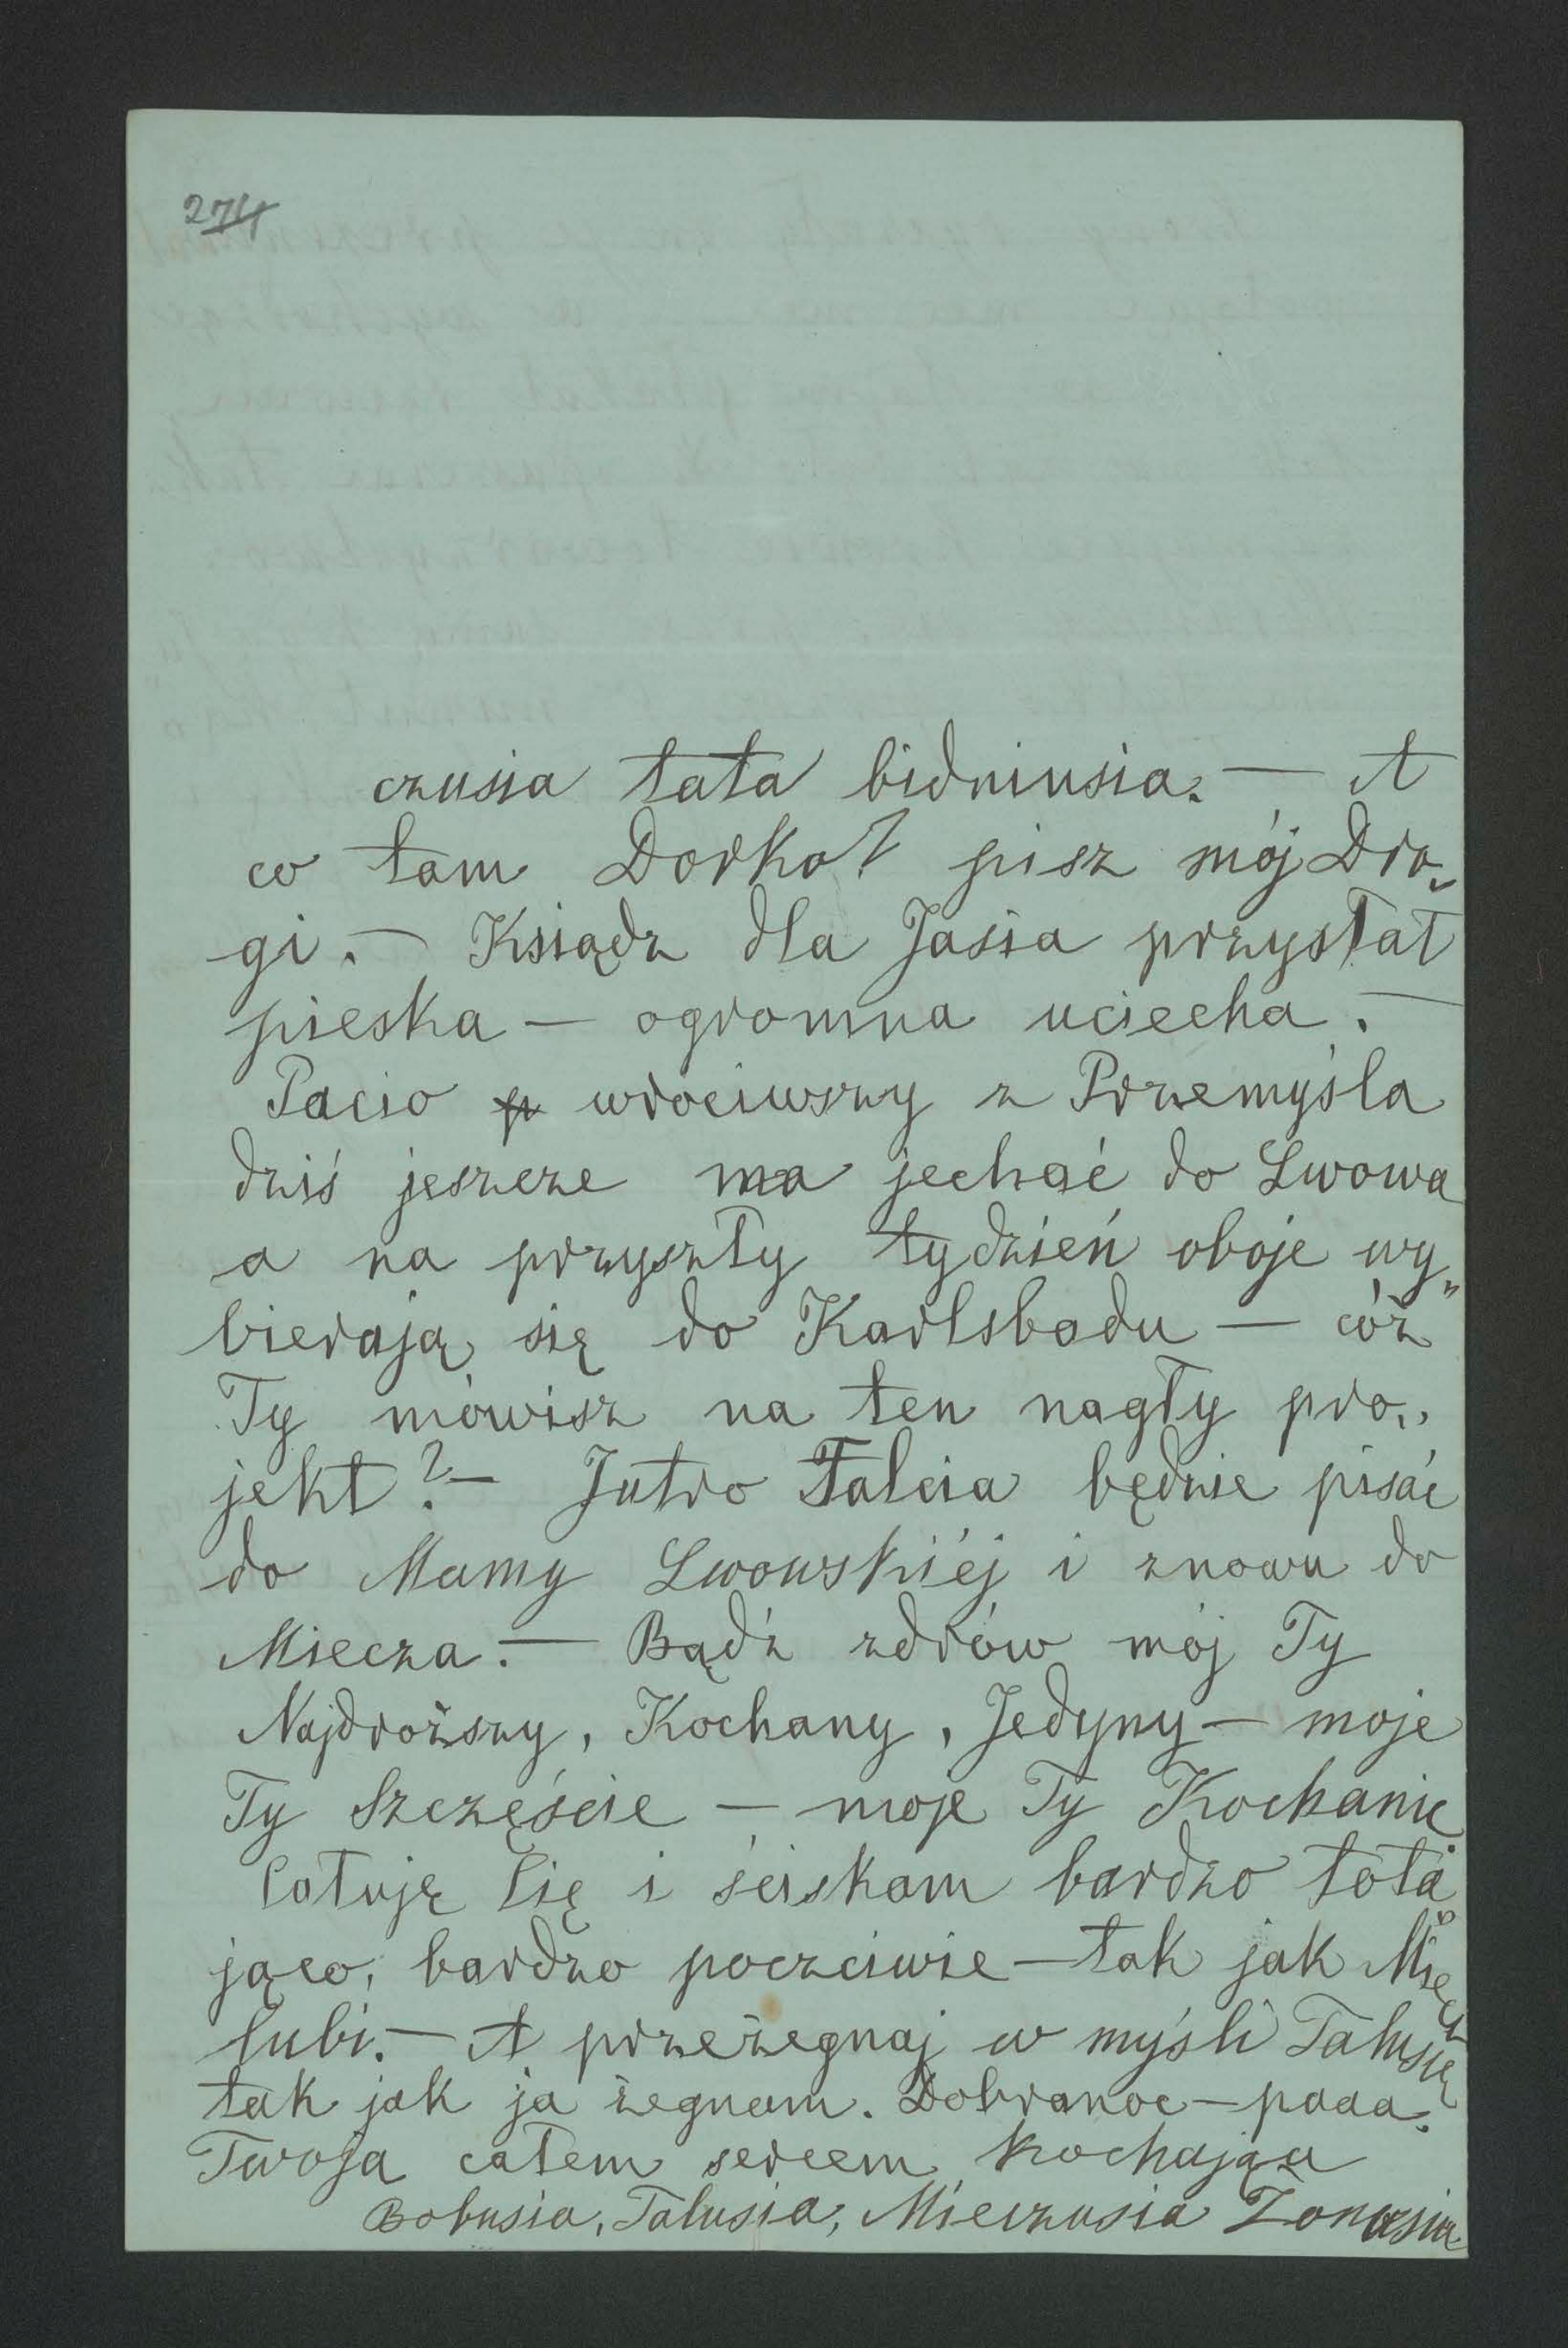 274
czusia tata bidniusia. — A
co tam Dorko? pisz mój Dro„
gi. — Ksiądz dla Jasia przysłał
pieska — ogromna uciecha. —
Pacio wrociwszy z Przemyśla
dziś jeszcze ma jechać do Lwowa
a na przyszły tydzień oboje wy„
bierają się do Karlsbadu — cóż
Ty mówisz na ten nagły pro„
jekt? — Jutro Talcia będzie pisać
do Mamy Lwowskiéj i znowu do
Miecza. — Bądź zdrów mój Ty
Najdroższy, Kochany, Jedyny — moje
Ty Szczęście — moje Ty Kochanie
Całuję Cię i ściskam bardzo totа„
jąco, bardzo poczciwie — tak jak Miecz
lubi. — A przeżegnaj w myśli Talusię
tak jak ja żegnam. Dobranoc — paaa.
Twoja całem sercem kochająca
Bobusia, Talusia, Mieczusia Żonusia